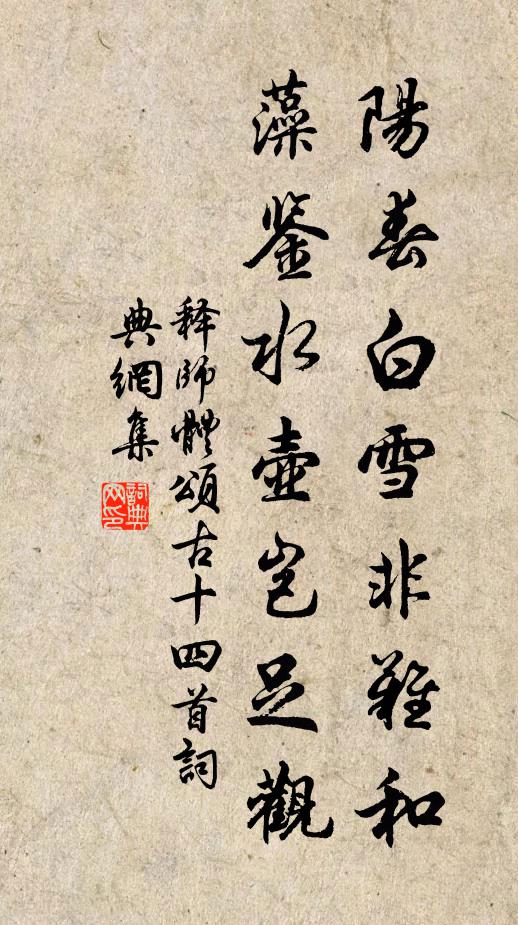 陽春白雪非難和
藻鉴水壺豈足觀
释師體頌古十四首詞
典網集
詞典网印